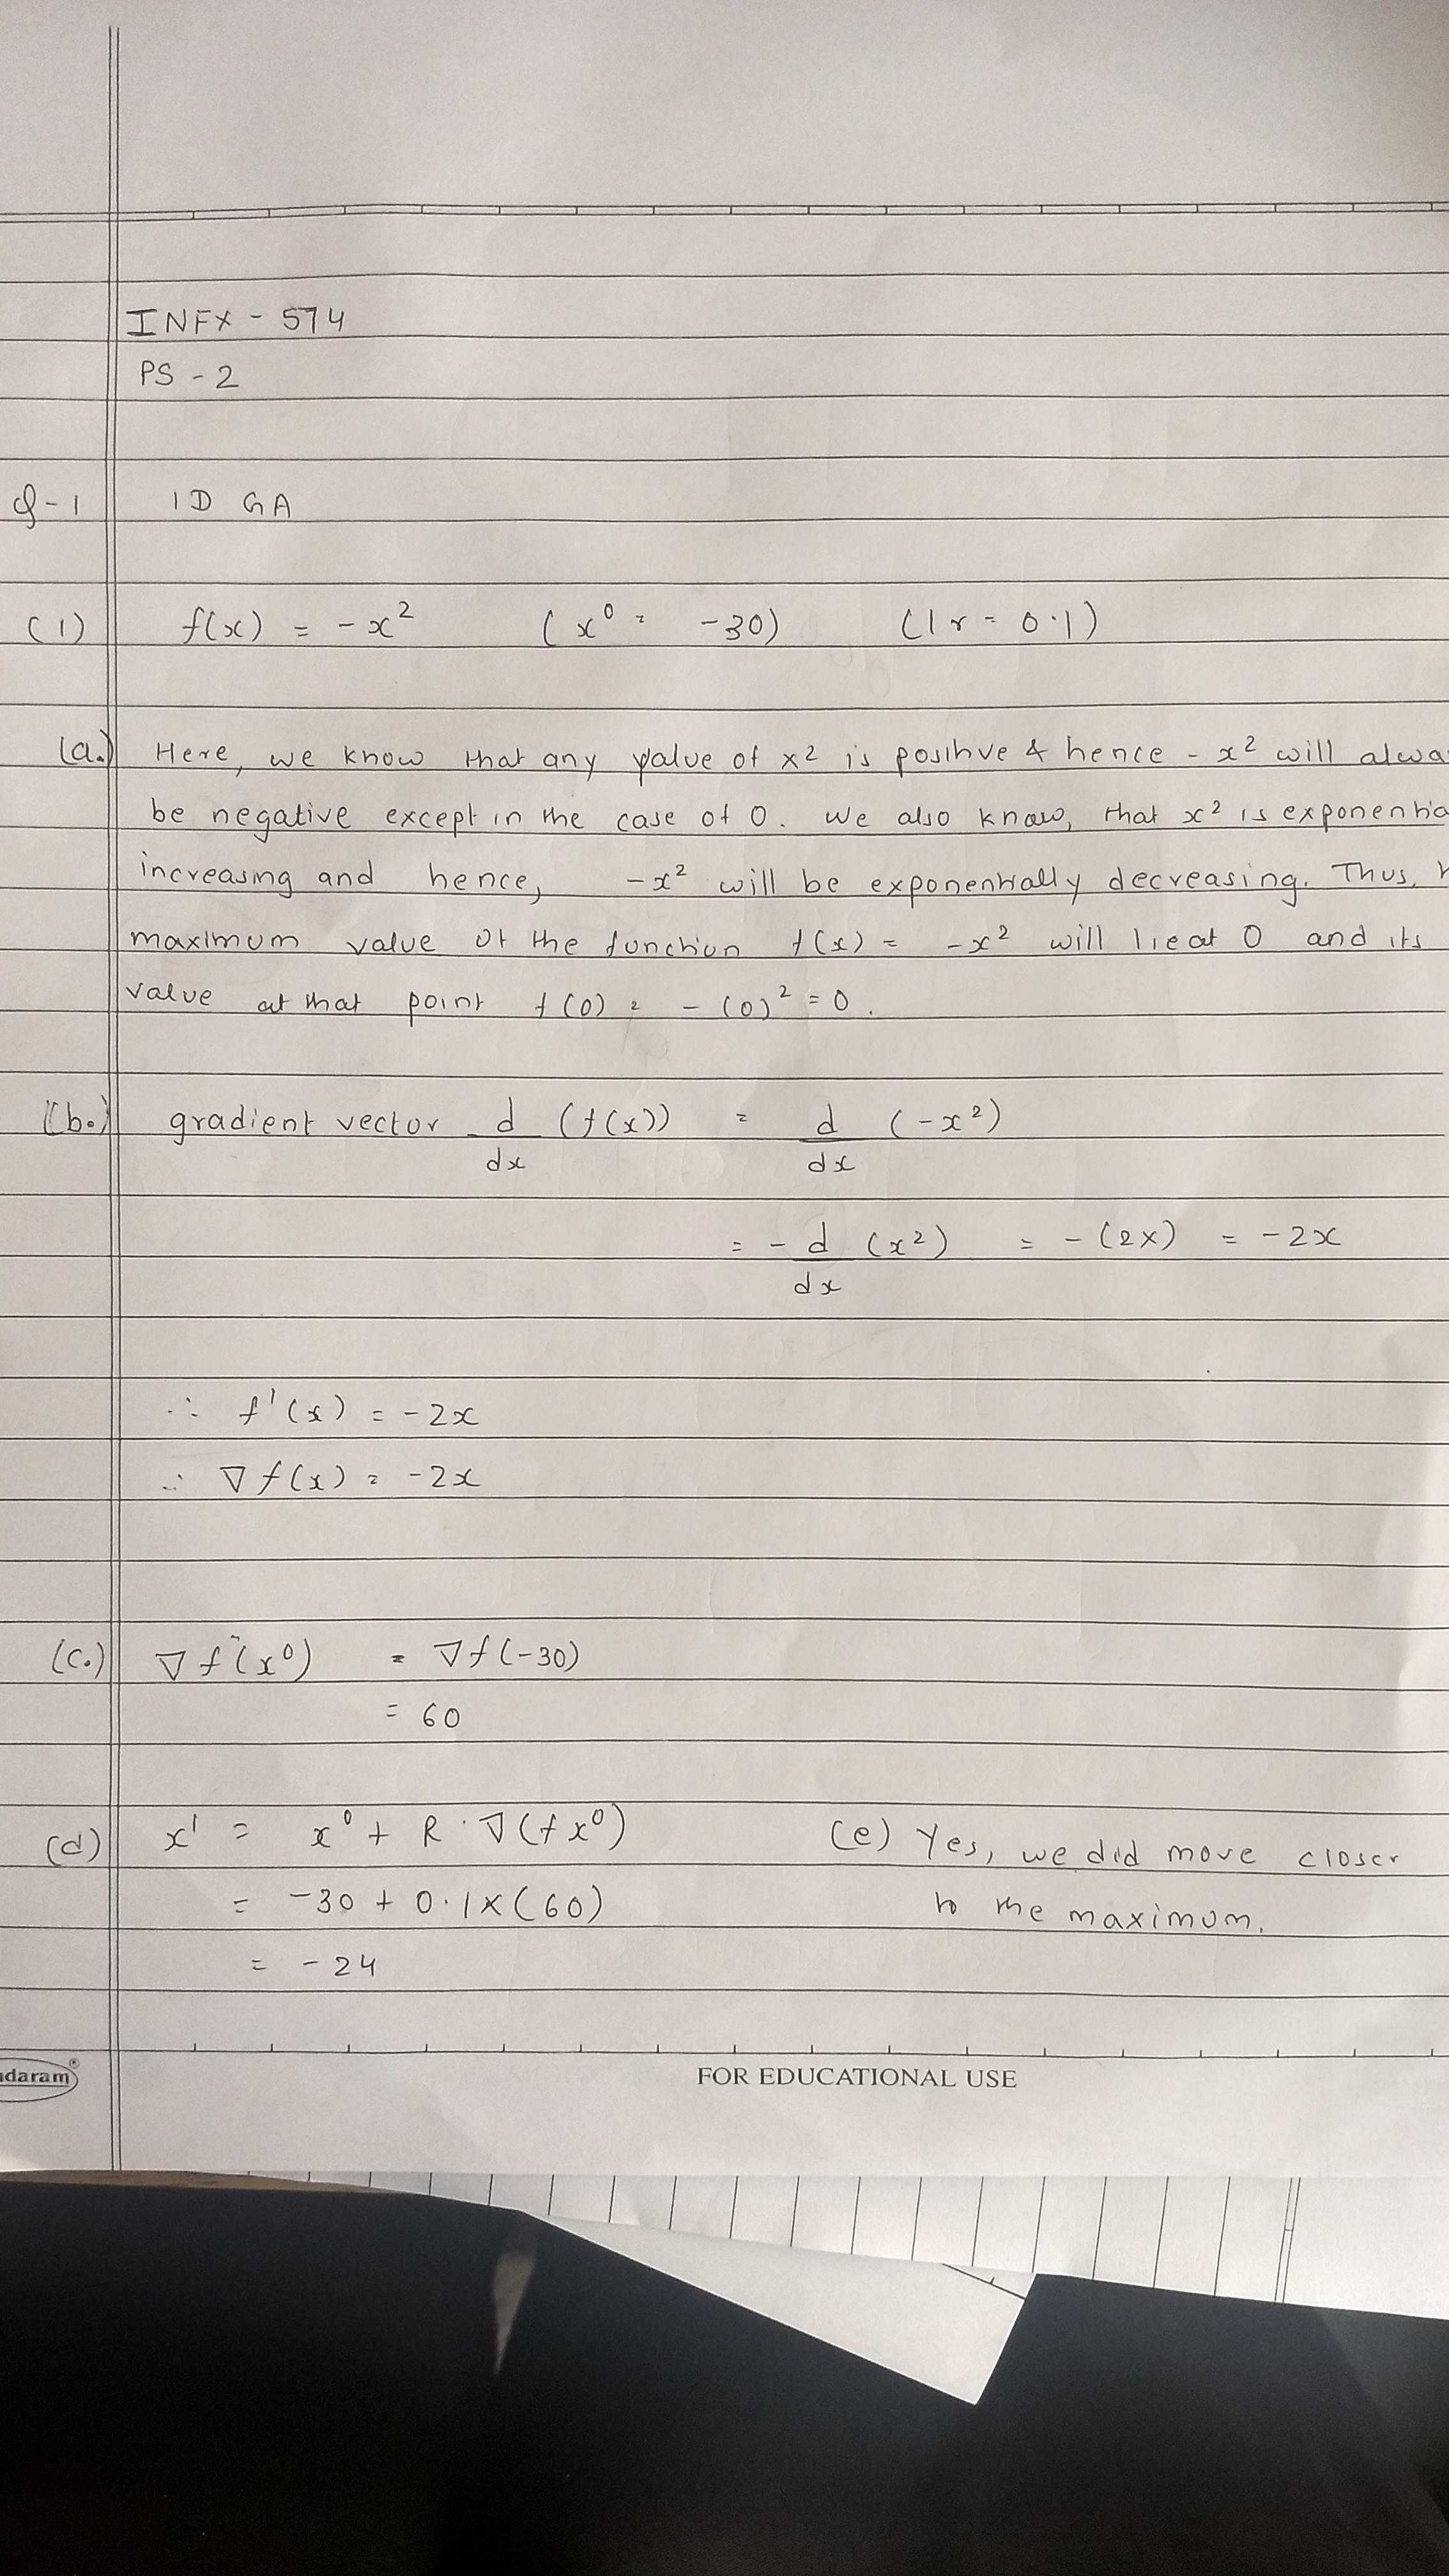 INFX - 574
PS - 2
Q-1 1D GA
(1) f(x) = -x² (x⁰ = -30) (lr = 0.1)
(a.) Here, we know that any value of x² is positive & hence - x² will alwa
be negative except in the case of 0. We also know, that x² is exponentia
increasing and hence, -x² will be exponentially decreasing. Thus,
maximum value of the function f(x) = -x² will lie at 0 and its
value at that point f(0) = - (0)² = 0.
(b.) gradient vector d/dx (f(x)) = d/dx (-x²)
= - d/dx (x²) = - (2x) = -2x
∴ f'(x) = -2x
∴ ∇f(x) = -2x
(c.) ∇f(x⁰) = ∇f(-30)
= 60
(d) x¹ = x⁰ + R · ∇(fx⁰) (e) Yes, we did move closer
= -30 + 0.1 x (60) to the maximum.
= -24
daram®
FOR EDUCATIONAL USE